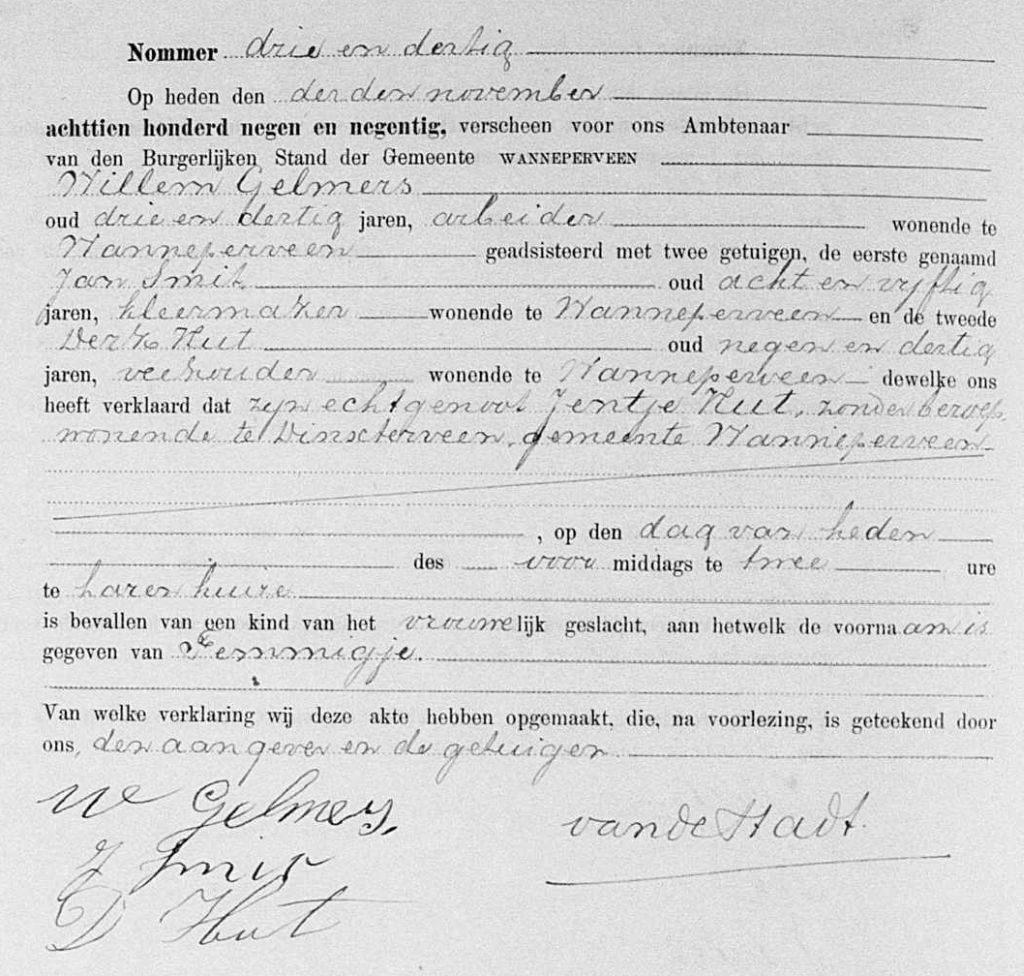 Nommer drie en dertig
Op heden den derden november
achttien honderd negen en negentig, verscheen voor ons Ambtenaar
van den Burgerlijken Stand der Gemeente WANNEPERVEEN
Willem Gelmers
oud drie en dertig jaren, arbeider wonende te
Wanneperveen geadsisteerd met twee getuigen, de eerste genaamd
Jan Smit oud acht en vijftig
jaren, kleermaker wonende te Wanneperveen en de tweede
Derk Hut oud negen en dertig
jaren, veehouder wonende te Wanneperveen dewelke ons
heeft verklaard dat zijn echtgenoot Jentje Hut, zonder beroep,
wonende te Dinxterveen, gemeente Wanneperveen
, op den dag van heden
des voor middags te twee ure
te haren huize
is bevallen van een kind van het vrouwelijk geslacht, aan hetwelk de voornaam is
gegeven van Femmigje.
Van welke verklaring wij deze akte hebben opgemaakt, die, na voorlezing, is geteekend door
ons, den aangever en de getuigen
W Gelmers,
vandeStadt.
J Smit
D Hut